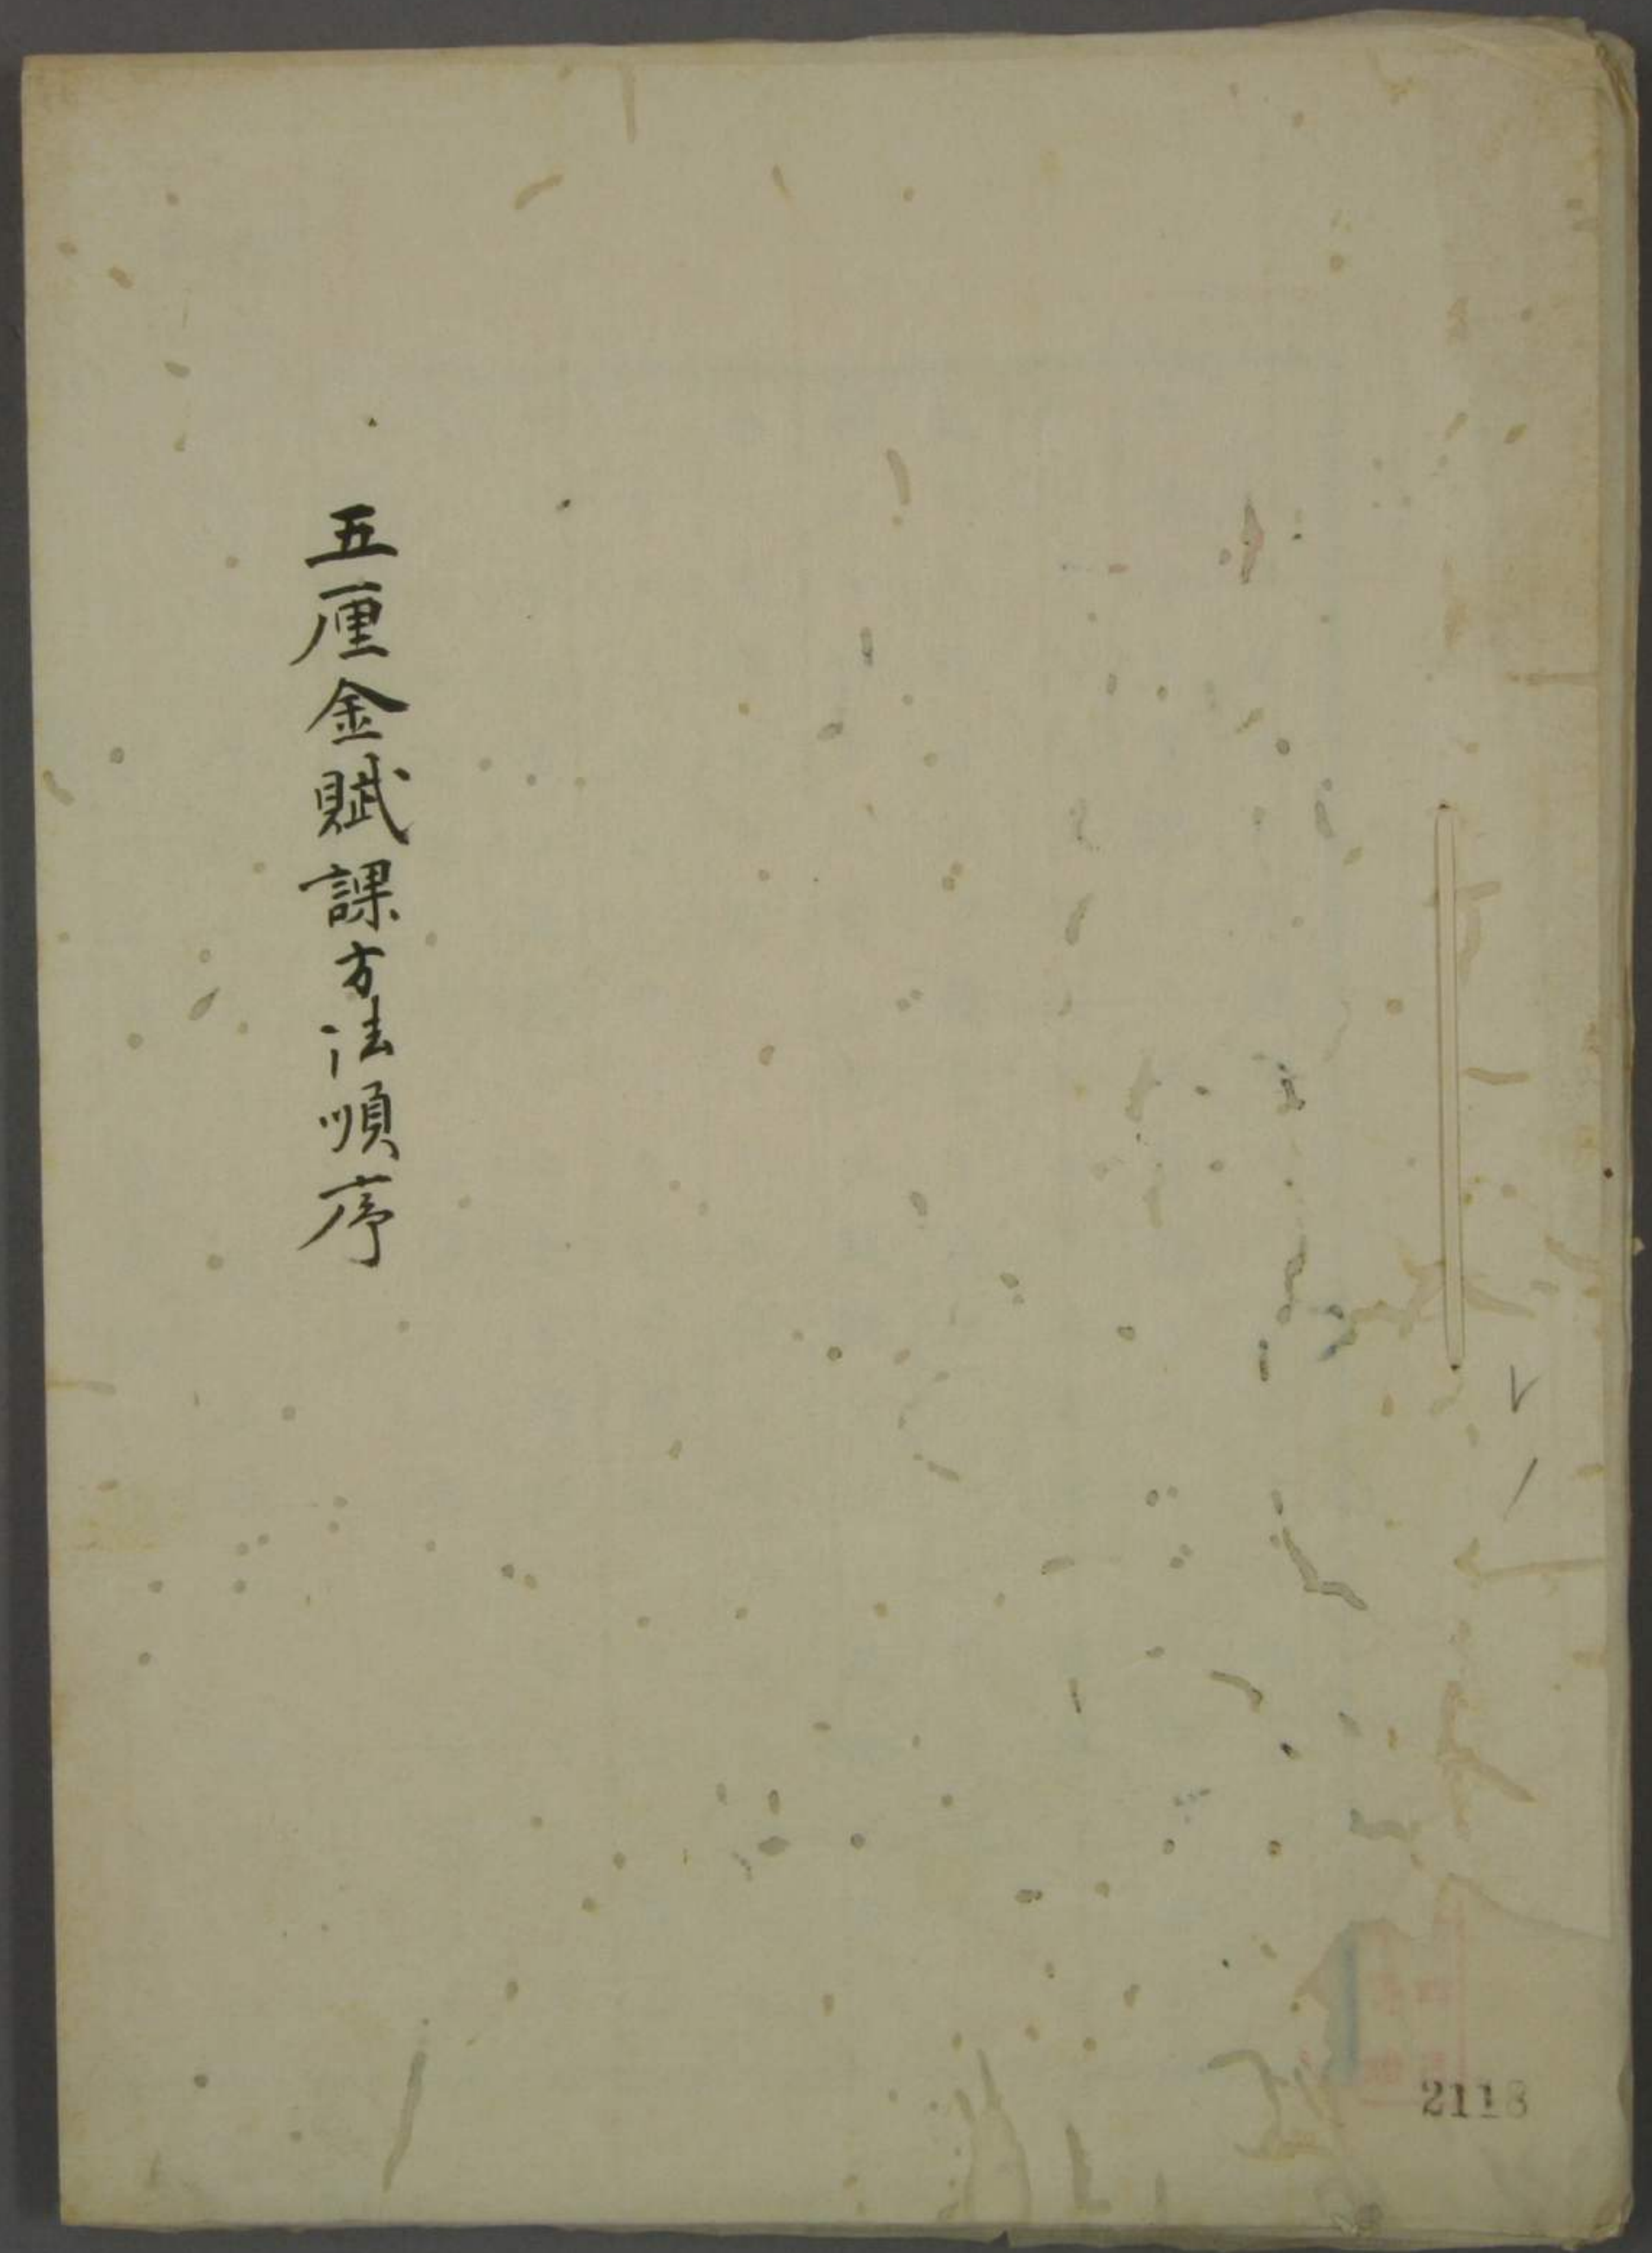 五厘金賦課方法順序
2118